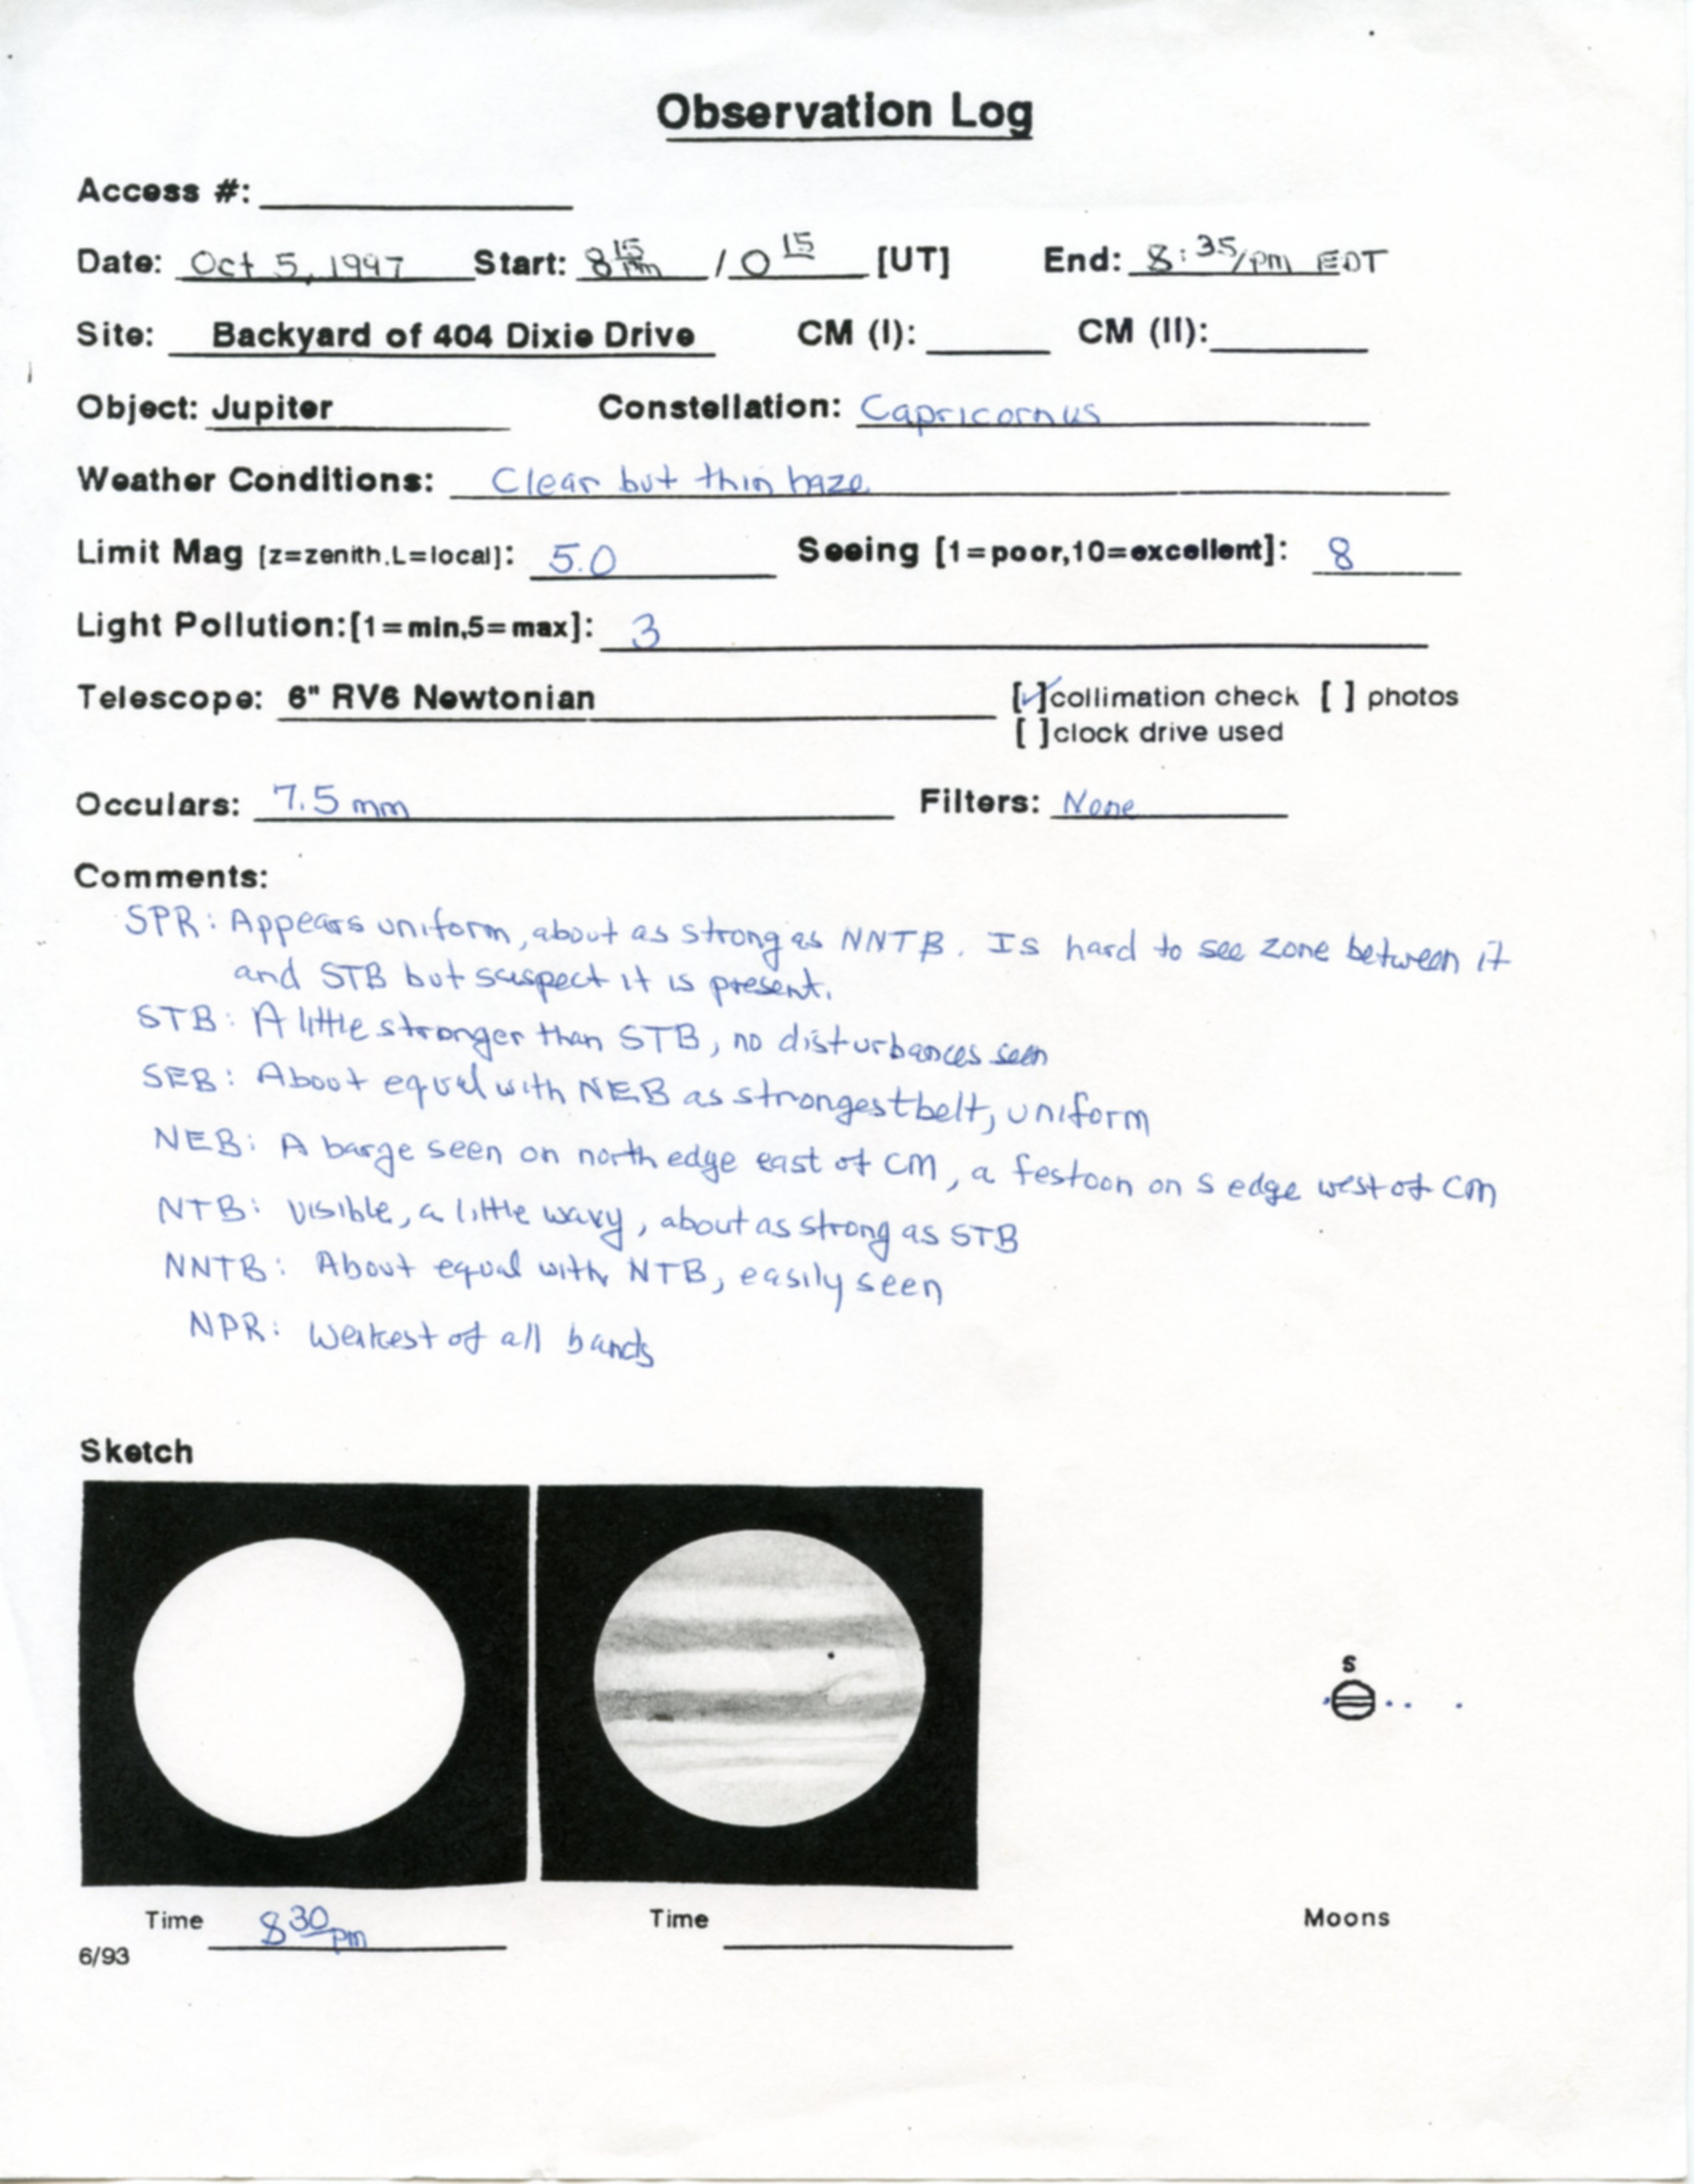 Observation Log
Access #:
Date: Oct 5, 1997 Start: 8 15 pm / 0 15 [UT] End: 8:35/pm EDT
Site: Backyard of 404 Dixie Drive CM (I): CM (II):
Object: Jupiter Constellation: Capricornus
Weather Conditions: Clear but thin haze
Limit Mag [z=zenith,L=local]: 5.0 Seeing [1=poor,10=excellent]: 8
Light Pollution:[1=min,5=max]: 3
Telescope: 6" RV6 Newtonian [✓]collimation check [ ] photos
[ ]clock drive used
Occulars: 7.5 mm Filters: None
Comments:
SPR: Appears uniform, about as strong as NNTB. Is hard to see zone between it
and STB but suspect it is present.
STB: A little stronger than STB, no disturbances seen
SEB: About equal with NEB as strongest belt, uniform
NEB: A barge seen on north edge east of CM, a festoon on S edge west of CM
NTB: visible, a little wavy, about as strong as STB
NNTB: About equal with NTB, easily seen
NPR: Weakest of all bands
Sketch
S
Time 8 30 pm Time Moons
6/93